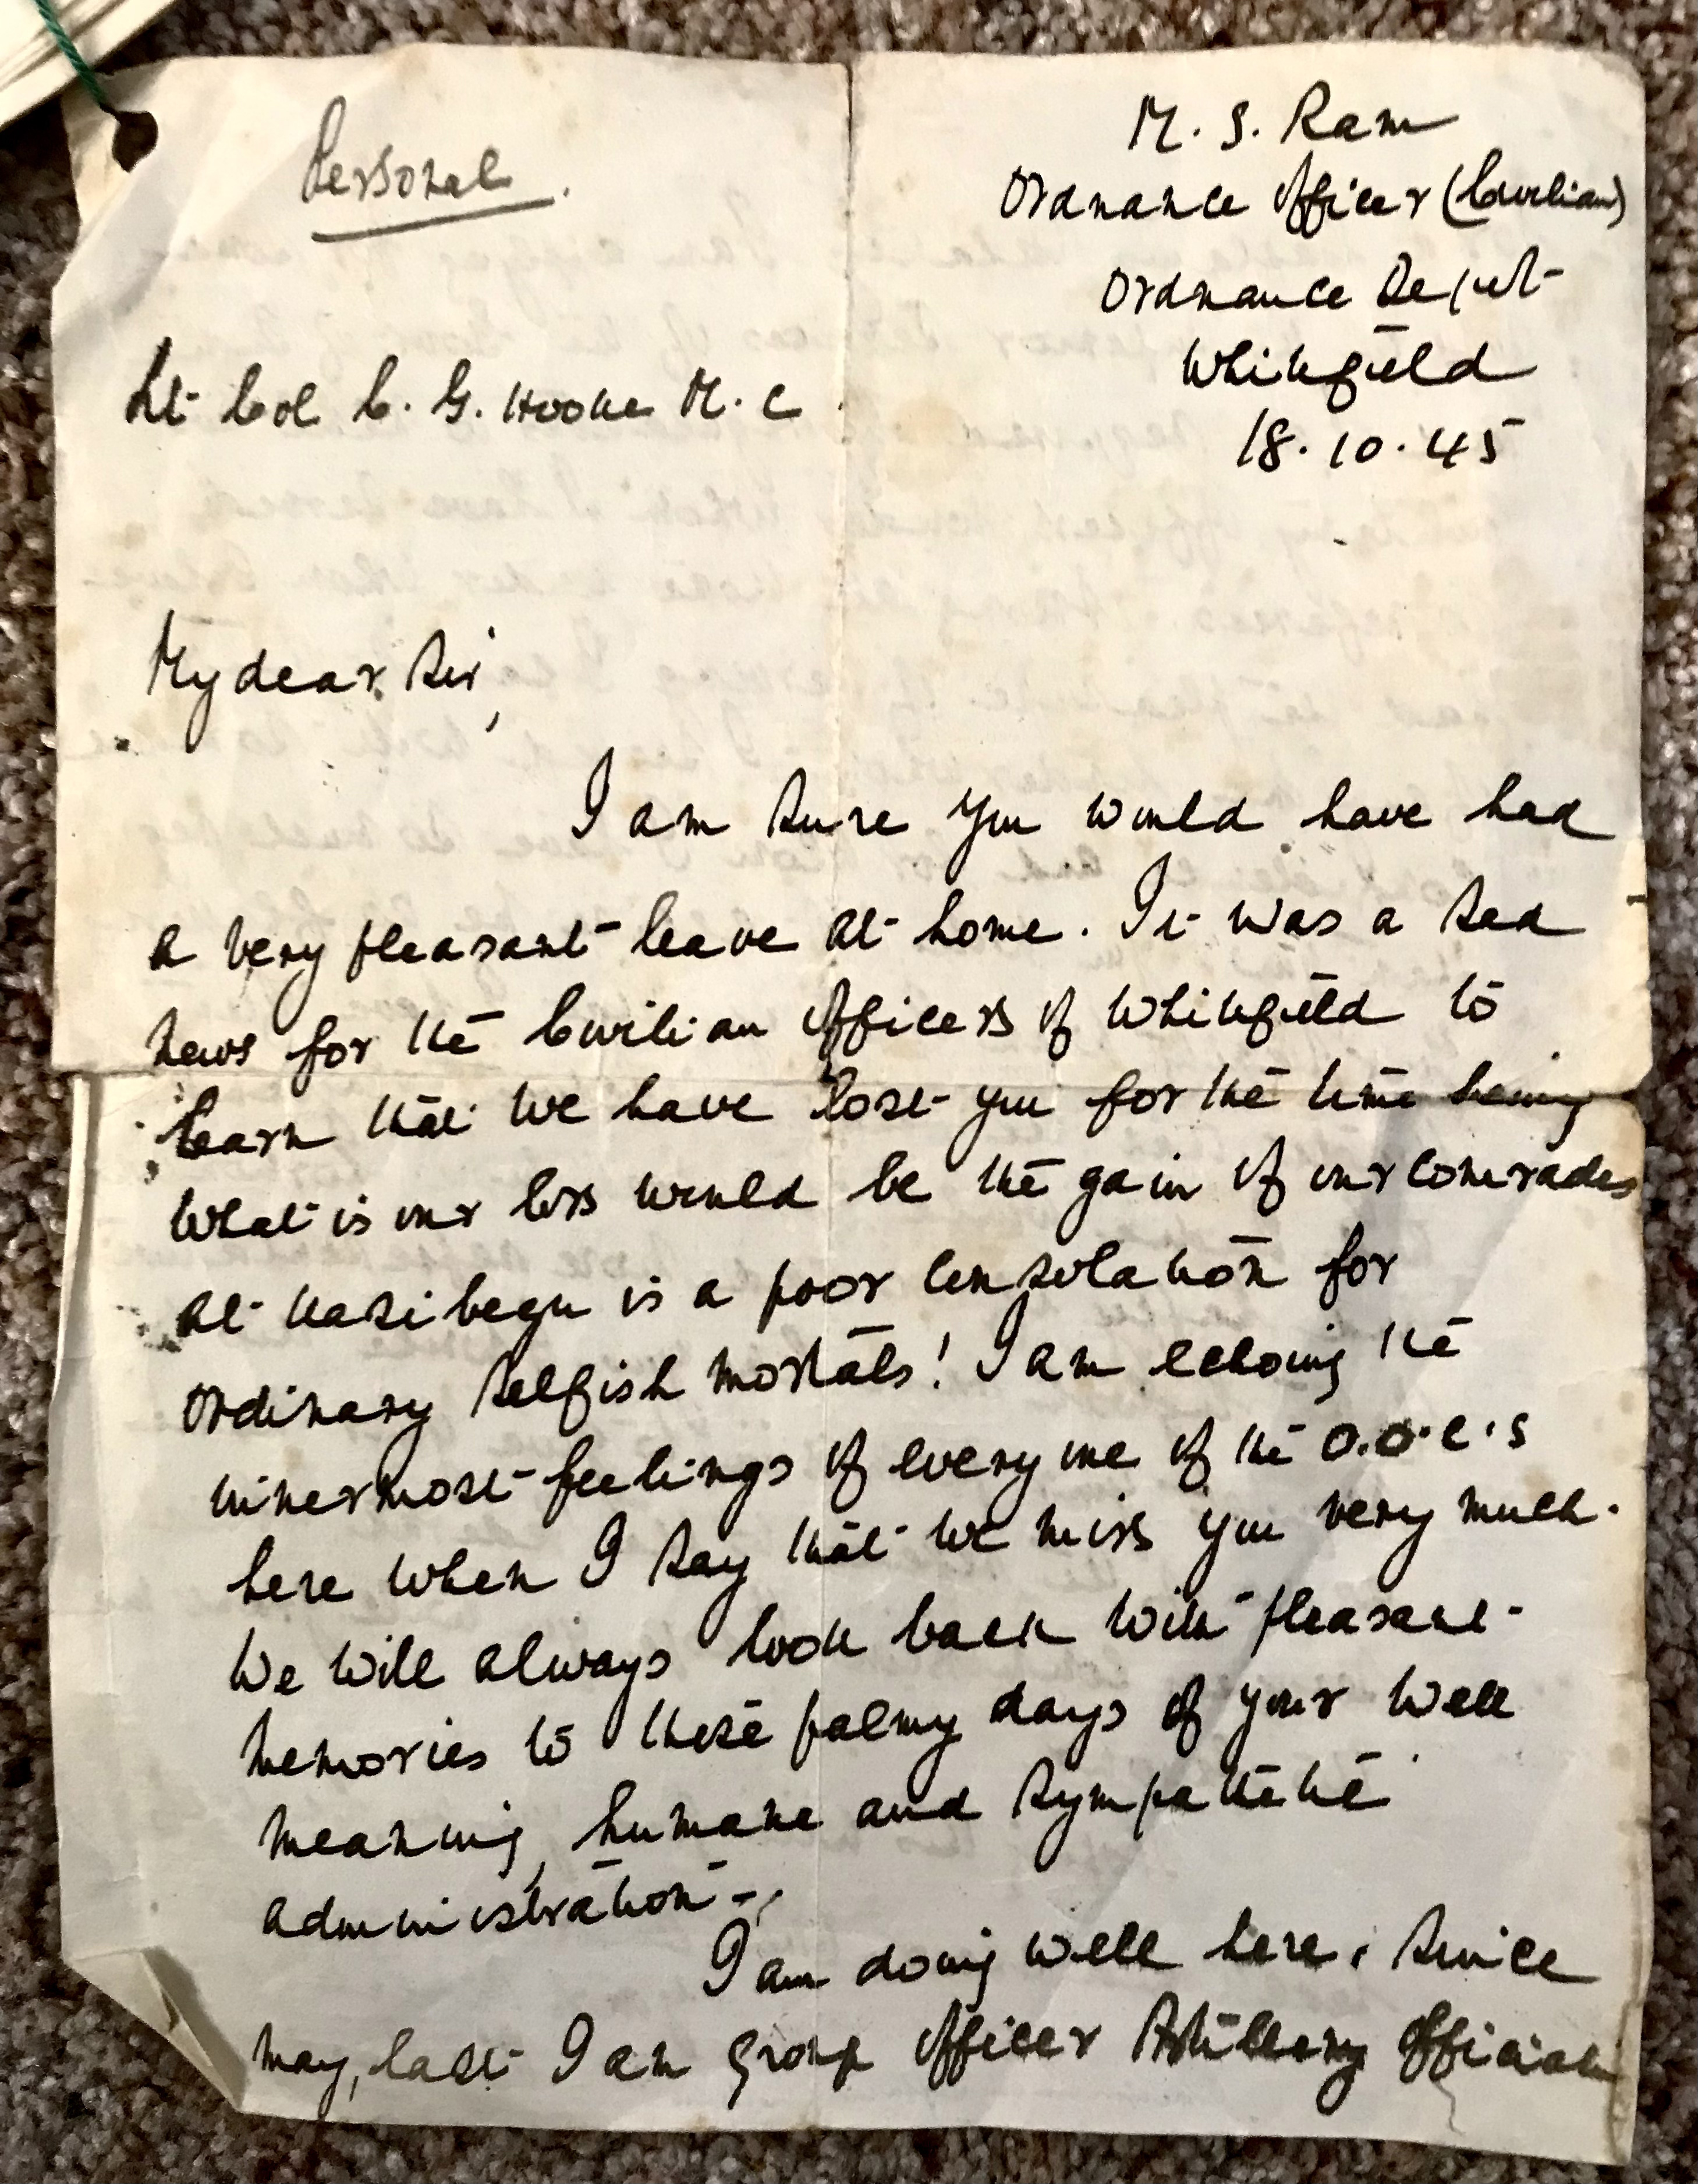 Personal.
M. S. Ram
Ordnance Officer (Civilian)
Ordnance Depot
Whitefield
18.10.45
Lt Col C. G. Hooke M.C
My dear Sir,
I am sure you would have had
a very pleasant leave at home. It was a sad
news for the Civilian officers of Whitefield to
learn that we have lost you for the time being
What is our loss would be the gain of our comrades
at Kasubegu is a poor consolation for
ordinary selfish mortals! I am echoing the
innermost feelings of every one of the O.O.C.s
here when I say that we miss you very much.
We will always look back with pleasant
memories to those palmy days of your well
meaning, humane and sympathetic
administration.
I am doing well here. Since
may, last I am Group Officer Artillery